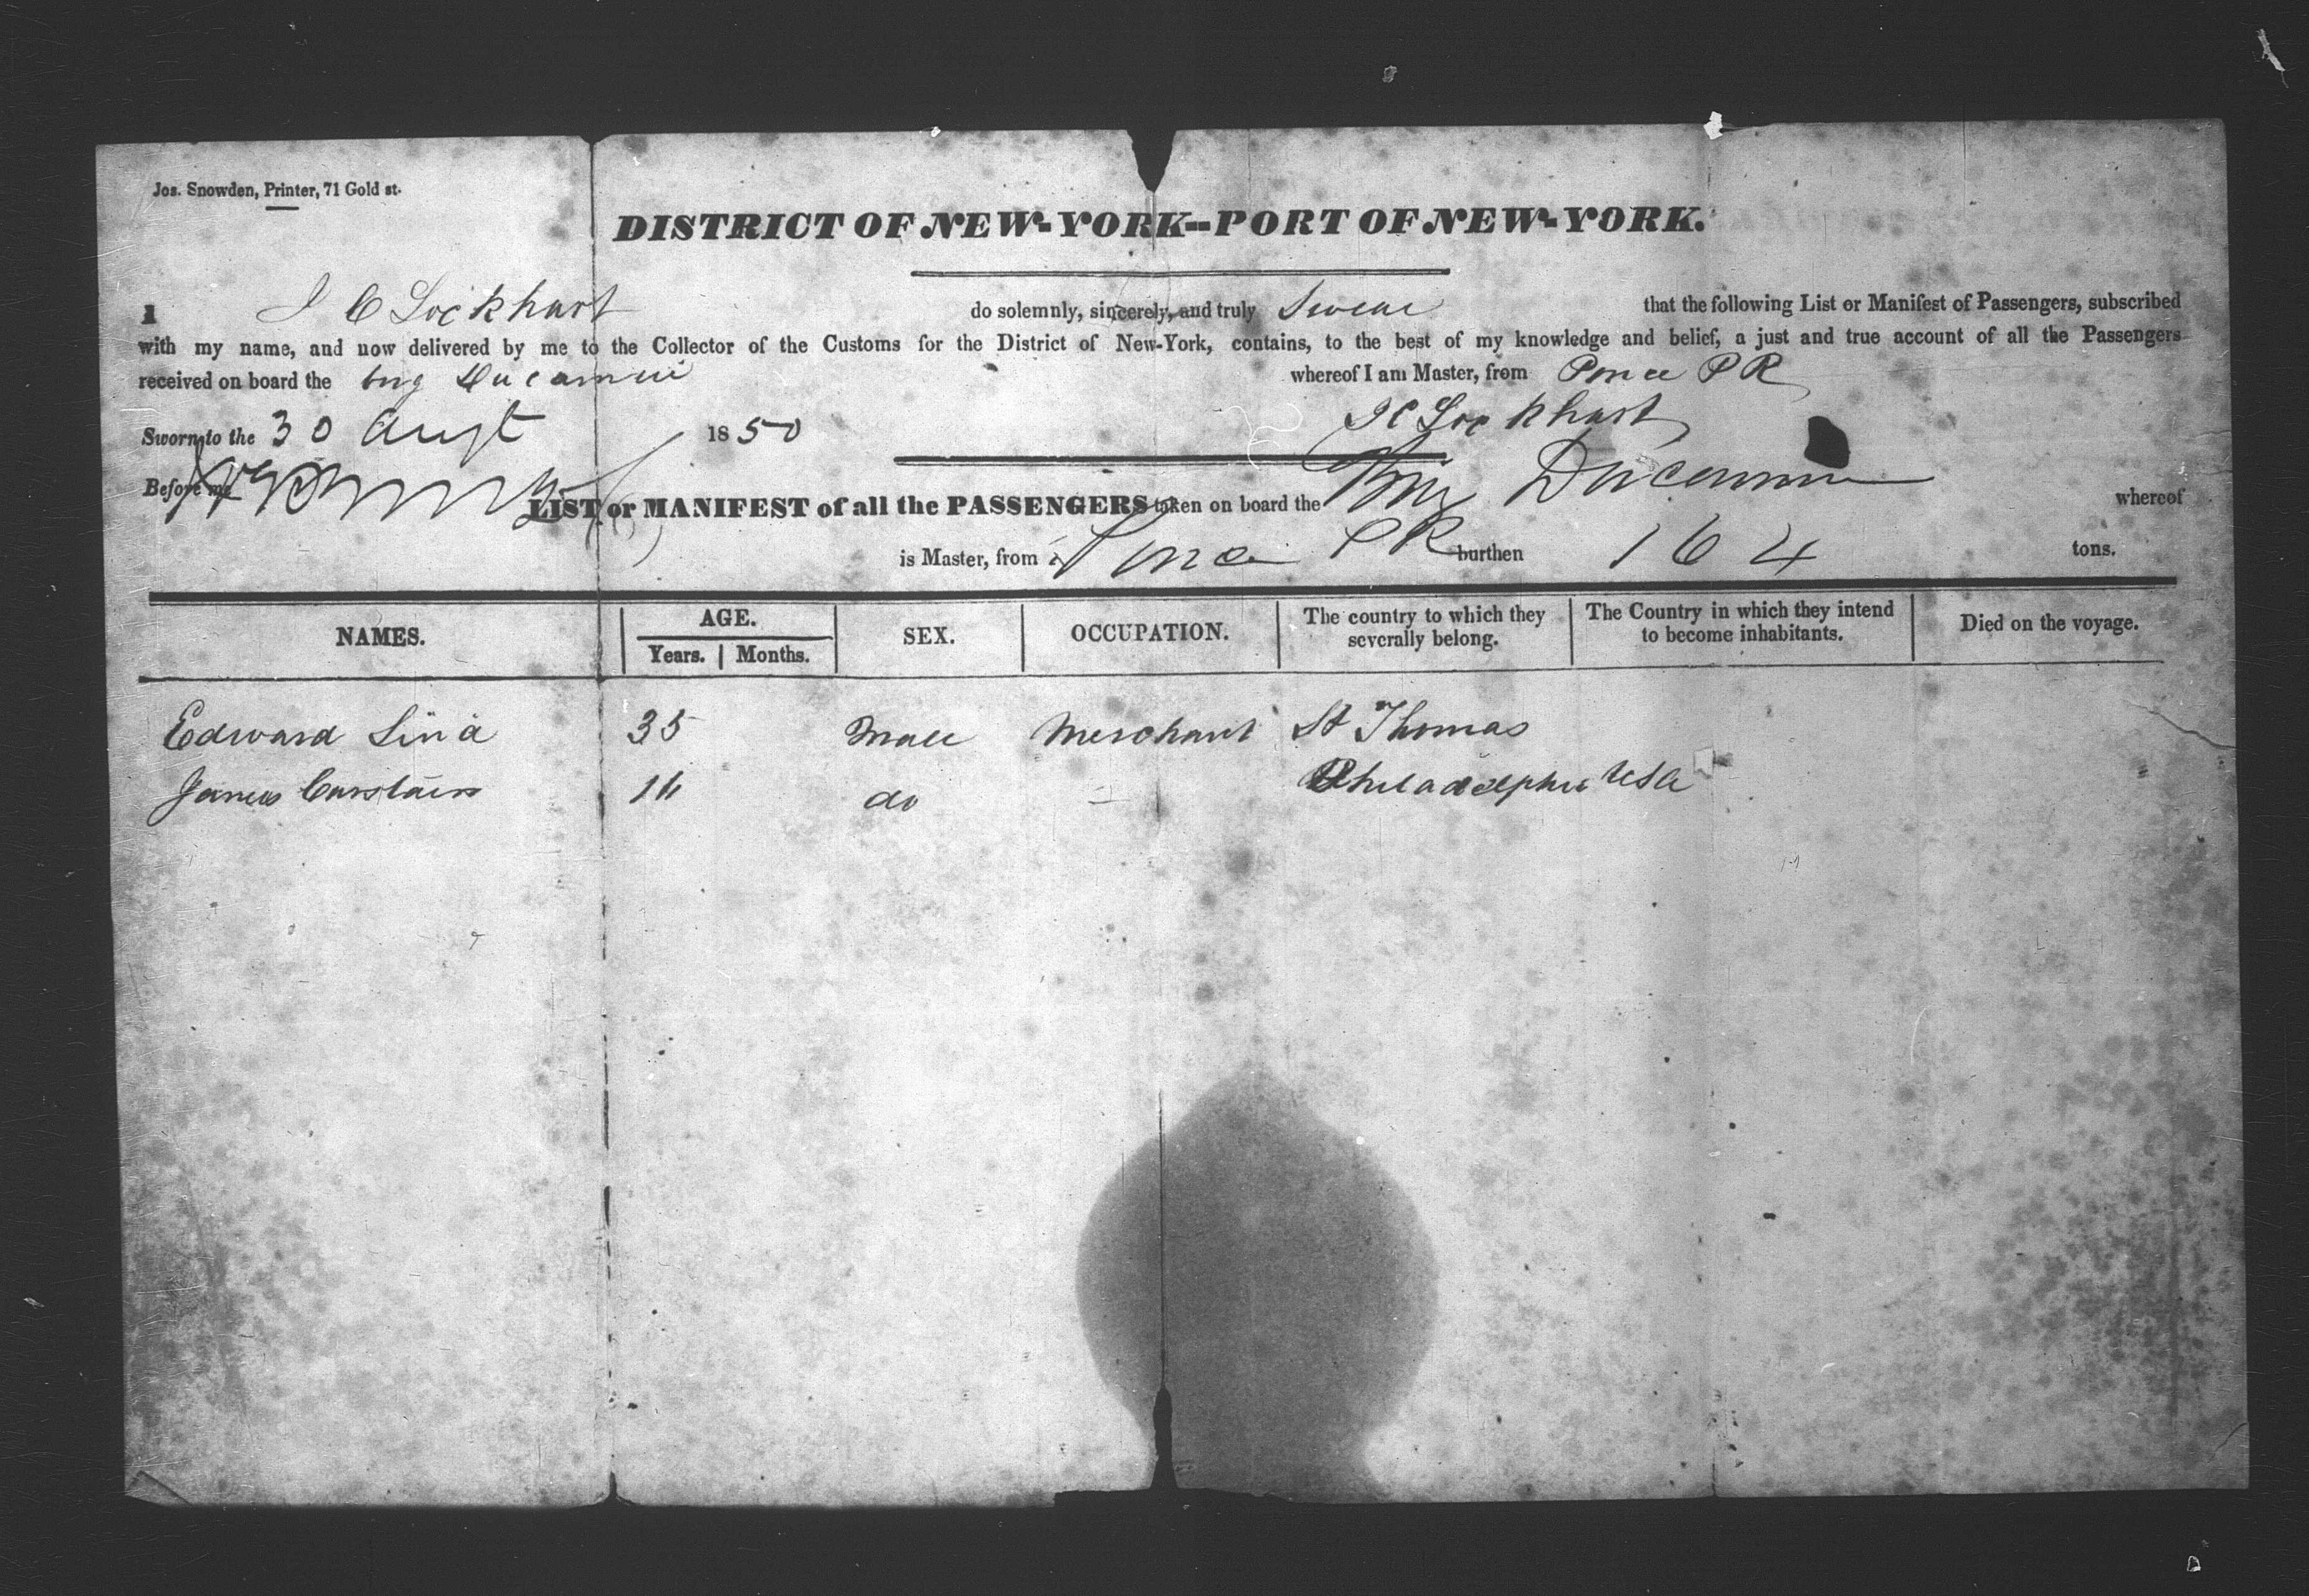 Jos. Snowden, Printer, 71 Gold st.
DISTRICT OF NEW-YORK--PORT OF NEW-YORK.
I J C Lockhart do solemnly, sincerely, and truly Swear that the following List or Manifest of Passengers, subscribed
with my name, and now delivered by me to the Collector of the Customs for the District of New-York, contains, to the best of my knowledge and belief, a just and true account of all the Passengers
received on board the brig whereof I am Master, from Ponce PR
Sworn to the 30 Augt 1850 J C Lockhart
Before me
LIST or MANIFEST of all the PASSENGERS taken on board the Brig whereof
is Master, from Ponce PR burthen 164 tons.
NAMES. AGE. SEX. OCCUPATION. The country to which they severally belong. The Country in which they intend to become inhabitants. Died on the voyage.
Years. Months.
Edward 35 Male Merchant St Thomas
James Carstairs do Philadelphia USA